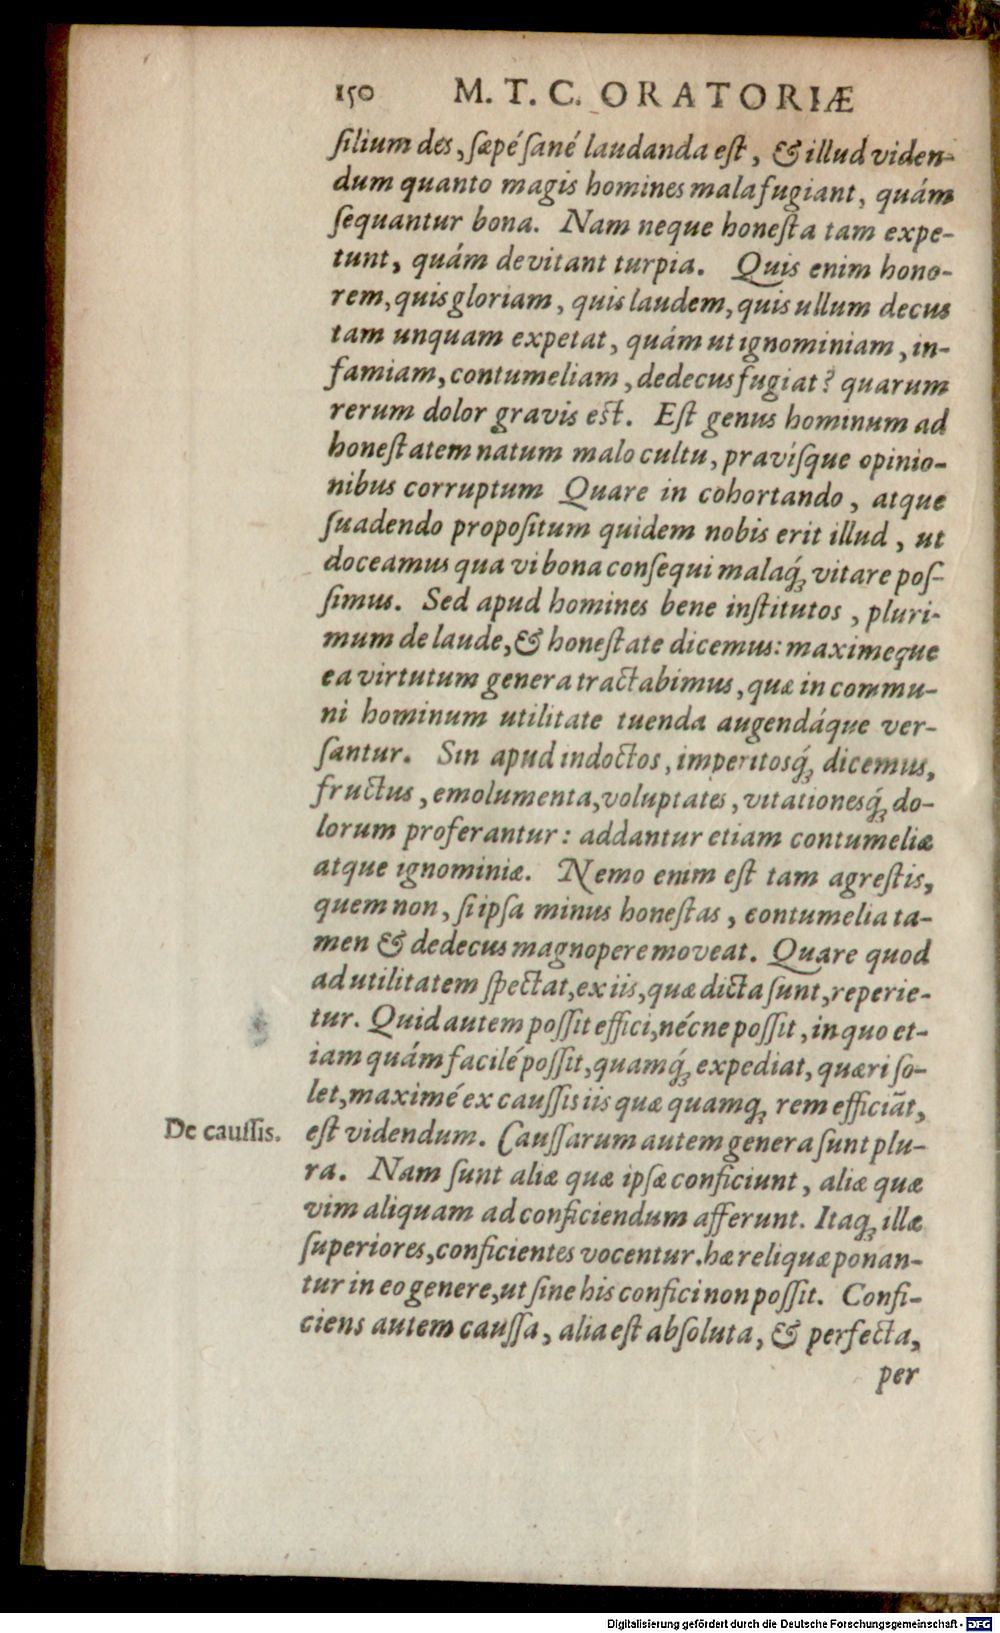 150 M. T. C. ORATORIÆ
ſilium des, ſæpé ſané laudanda eſt, & illud viden-
dum quanto magis homines mala fugiant, quám
ſequantur bona. Nam neque honeſta tam expe-
tunt, quám devitant turpia. Quis enim hono-
rem, quis gloriam, quis laudem, quis ullum decus
tam unquam expetat, quám ut ignominiam, in-
famiam, contumeliam, dedecus fugiat? quarum
rerum dolor gravis est. Eſt genus hominum ad
honeſtatem natum malo cultu, praviſque opinio-
nibus corruptum Quare in cohortando, atque
ſuadendo propoſitum quidem nobis erit illud, ut
doceamus qua vi bona conſequi malaq́; vitare poſ-
ſimus. Sed apud homines bene inſtitutos, pluri-
mum de laude, & honeſtate dicemus: maximeque
ea virtutum genera tractabimus, quæ in commu-
ni hominum utilitate tuenda augendáque ver-
ſantur. Sin apud indoctos, imperitosq́; dicemus,
fructus, emolumenta, voluptates, vitationesq́; do-
lorum proferantur: addantur etiam contumeliæ
atque ignominiæ. Nemo enim eſt tam agreſtis,
quem non, ſi ipſa minus honeſtas, contumelia ta-
men & dedecus magnopere moveat. Quare quod
ad utilitatem ſpectat, ex iis, quæ dicta ſunt, reperie-
tur. Quid autem poſſit effici, nécne poſſit, in quo et-
iam quám facilé poſſit, quamq́; expediat, quæri ſo-
let, maximé ex cauſſis iis quæ quamq; rem efficiāt,
De cauſſis.
eſt videndum. Cauſſarum autem genera ſunt plu-
ra. Nam ſunt aliæ quæ ipſæ conficiunt, aliæ quæ
vim aliquam ad conficiendum afferunt. Itaq; illæ
ſuperiores, conficientes vocentur. hæ reliquæ ponan-
tur in eo genere, ut ſine his confici non poſſit. Confi-
ciens autem cauſſa, alia eſt abſoluta, & perfecta,
per
Digitalisierung gefördert durch die Deutsche Forschungsgemeinschaft - DFG